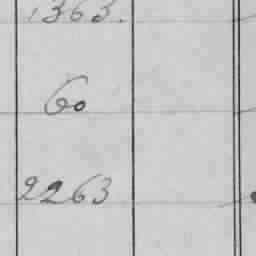 1363.
60
2263